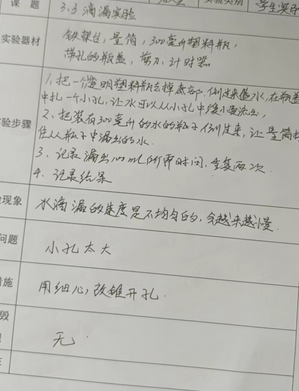 课 题 3.3 滴漏实验 学生实验
实验器材 铁架台，量筒，300毫升塑料瓶，
带孔的瓶盖，剪刀，计时器
1、把一个透明塑料瓶去掉底部，倒过来盛水，在瓶盖
中扎一个小孔，让水可以从小孔中慢慢流出，
验步骤 2、把装有300毫升的水的瓶子倒过来，让量筒接
住从瓶子中漏出的水
3、记录漏出100mL所需时间，重复两次
4、记录结果
现象 水滴漏的速度是不均匀的，会越来越慢
问题 小孔太大
措施 用细心，改锥开孔
毁
无